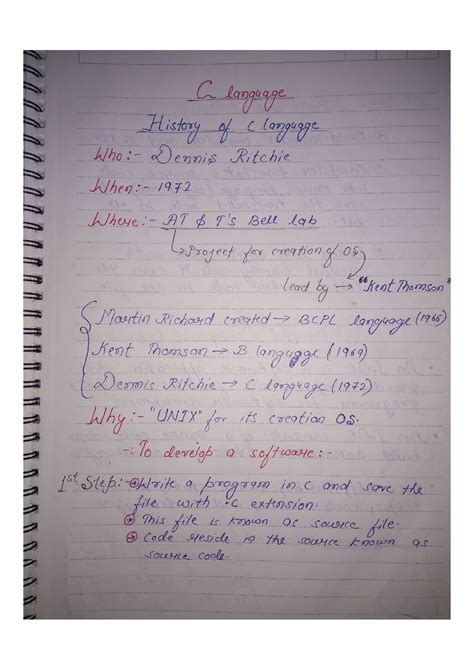 C language
History of C language
Who:- Dennis Ritchie
When:- 1972
Where:- AT & T's Bell lab
↳ Project for creation of OS
lead by → "Kent Thomson"
Martin Richard created → BCPL language (1966)
Kent Thomson → B language (1969)
Dennis Ritchie → C language (1972)
Why:- "UNIX" for its creation OS.
- To develop a software:-
1st Step:- Write a program in C and save the
file with .C extension.
This file is known as source file.
Code reside in the source known as
source code.